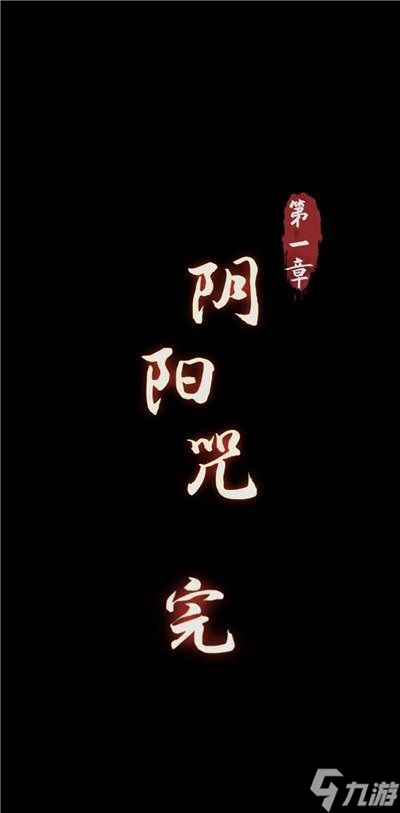 第一章
阴阳咒
完
九游